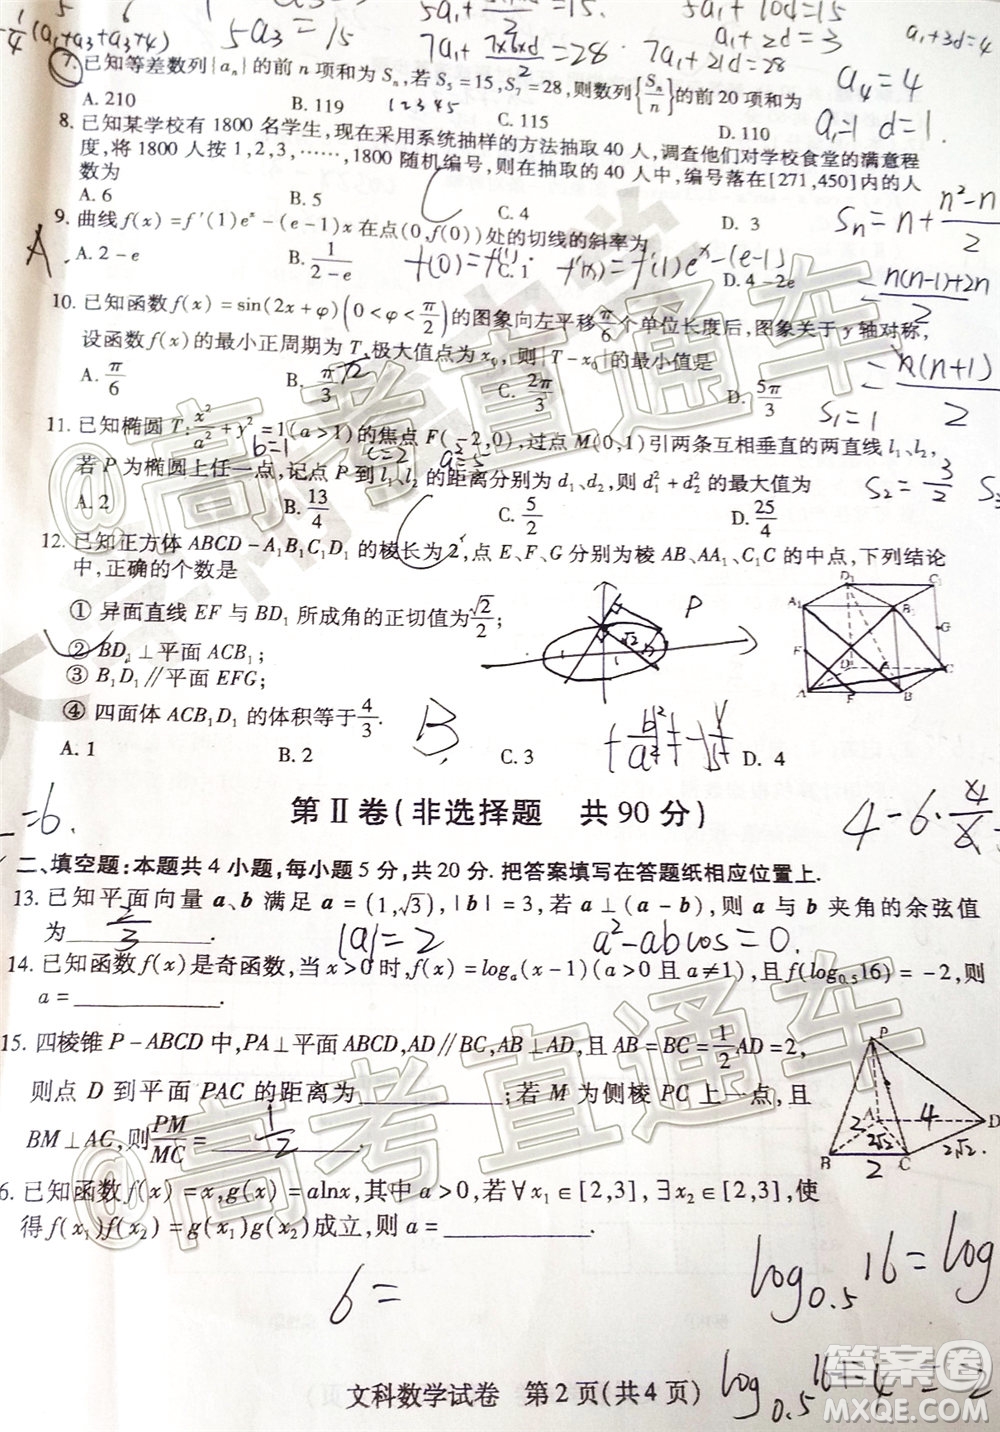 -1/4(a₁+a₃+a₃+4) 5a₃=15 5a₁+ =15. 5a₁+10d=15
7a₁+7×6×d/2=28 · 7a₁+21d=28 a₁+2d=3 a₁+3d=4
7. 已知等差数列{aₙ}的前 n 项和为 Sₙ,若 S₅=15,S₇=28,则数列{Sₙ/n}的前 20 项和为
A. 210 B. 119 C. 115 D. 110
1 2 3 4 5 a₄=4
a₁=1 d=1.
8. 已知某学校有 1800 名学生,现在采用系统抽样的方法抽取 40 人,调查他们对学校食堂的满意程
度,将 1800 人按 1,2,3,……,1800 随机编号,则在抽取的 40 人中,编号落在[271,450]内的人
数为
A. 6 B. 5 C. 4 D. 3
C
Sₙ=n+(n²-n)/2
9. 曲线 f(x)=f′(1)eˣ-(e-1)x 在点(0,f(0))处的切线的斜率为
A. 2-e B. 1/(2-e) C. 1 D. 4-2e
A f(0)=f'(1) f'(x)=f'(1)eˣ-(e-1)
(n(n-1)+2n)/2
10. 已知函数 f(x)=sin(2x+φ)(0<φ<π/2)的图象向左平移π/6个单位长度后,图象关于 y 轴对称,
设函数 f(x)的最小正周期为 T,极大值点为 x₀,则|T-x₀|的最小值是
A. π/6 B. π/3 C. 2π/3 D. 5π/3
n(n+1)/2
S₁=1
11. 已知椭圆 T:x²/a²+y²=1(a>1)的焦点 F(-2,0),过点 M(0,1)引两条互相垂直的两直线 l₁、l₂,
b=1 c=2 a²=5
若 P 为椭圆上任一点,记点 P 到 l₁、l₂ 的距离分别为 d₁、d₂,则 d₁²+d₂² 的最大值为
A. 2 B. 13/4 C. 5/2 D. 25/4
C
S₂=3/2 S₃
12. 已知正方体 ABCD-A₁B₁C₁D₁ 的棱长为 2,点 E、F、G 分别为棱 AB、AA₁、C₁C 的中点,下列结论
中,正确的个数是
① 异面直线 EF 与 BD₁ 所成角的正切值为√2/2;
② BD₁⊥平面 ACB₁;
③ B₁D₁∥平面 EFG;
④ 四面体 ACB₁D₁ 的体积等于4/3.
A. 1 B. 2 C. 3 D. 4
B
P
D₁ C₁ A₁ B₁ G F D C A E B
第Ⅱ卷(非选择题 共 90 分)
=6.
二、填空题:本题共 4 小题,每小题 5 分,共 20 分. 把答案填写在答题纸相应位置上.
13. 已知平面向量 a、b 满足 a=(1,√3),|b|=3,若 a⊥(a-b),则 a 与 b 夹角的余弦值
为 2/3
|a|=2 a²-abcos=0.
14. 已知函数 f(x)是奇函数,当 x>0 时,f(x)=logₐ(x-1)(a>0 且 a≠1),且 f(log₀.₅16)=-2,则
a=.
15. 四棱锥 P-ABCD 中,PA⊥平面 ABCD,AD∥BC,AB⊥AD,且 AB=BC=1/2AD=2,
则点 D 到平面 PAC 的距离为;若 M 为侧棱 PC 上一点,且
BM⊥AC,则PM/MC=1/2.
P A D B C 2 4 2√2 2 2√2
6. 已知函数 f(x)=x,g(x)=alnx,其中 a>0,若∀x₁∈[2,3],∃x₂∈[2,3],使
得 f(x₁)f(x₂)=g(x₁)g(x₂)成立,则 a=.
6=
log₀.₅16=log
log₀.₅16=4=-2
文科数学试卷 第 2 页(共 4 页)
@高考直通车
@高考直通车
答案圈
MXQE.COM